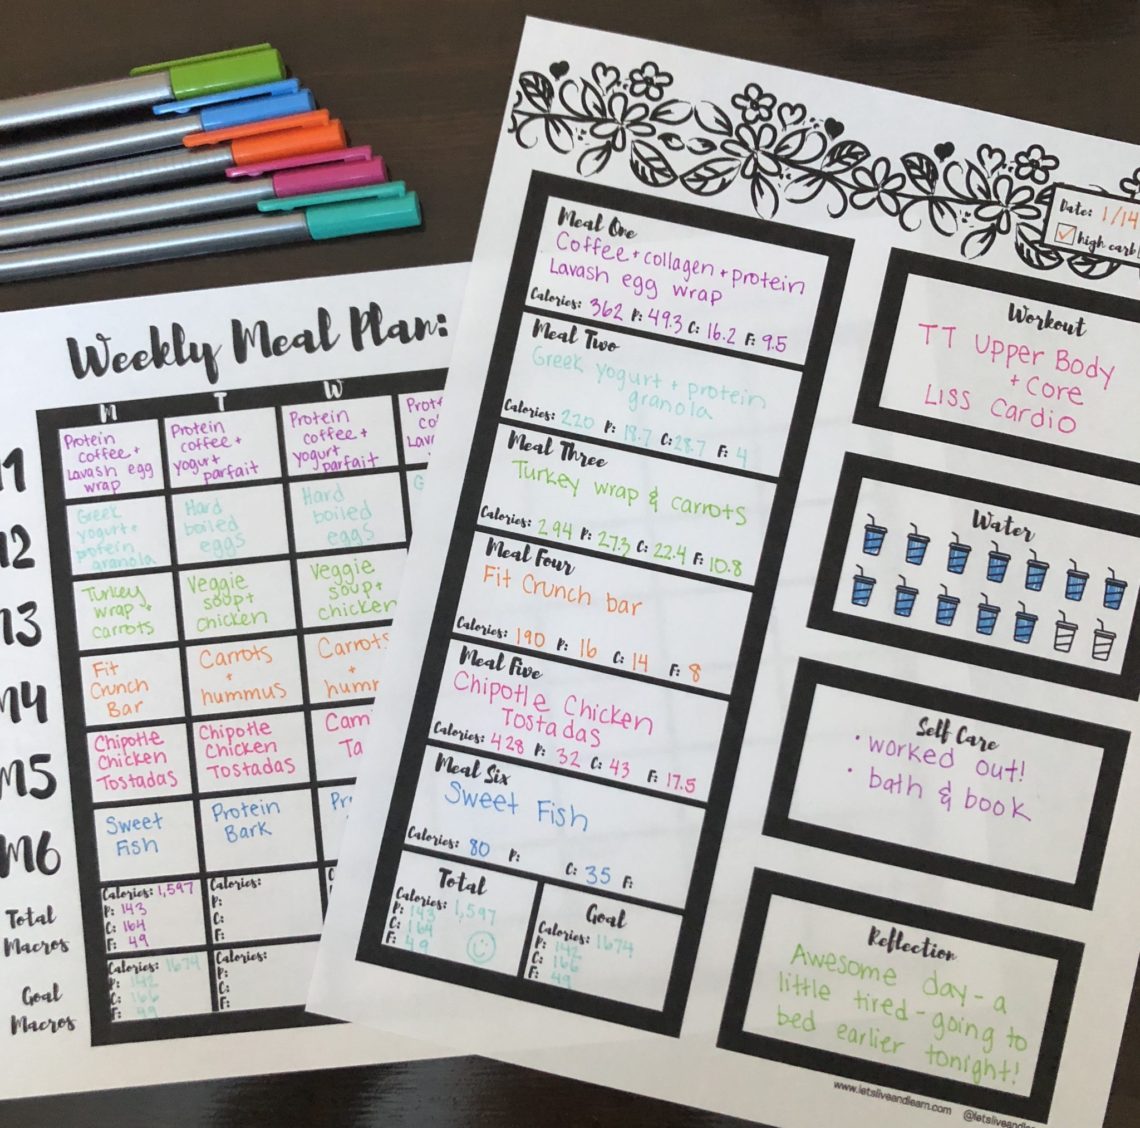 Weekly Meal Plan:
M T W
Protein coffee + Lavash egg wrap
Protein coffee + yogurt parfait
Protein coffee + yogurt parfait
Lavash
M2
Greek yogurt + protein granola
Hard boiled eggs
Hard boiled eggs
G
M3
Turkey wrap + carrots
Veggie soup + chicken
Veggie soup + chicken
M4
Fit Crunch Bar
Carrots + hummus
Carrots +
M5
Chipotle Chicken Tostadas
Chipotle Chicken Tostadas
M6
Sweet Fish
Protein Bark
Total Macros
Calories: 1,597
P: 143
C: 164
F: 49
Calories:
P:
C:
F:
Goal Macros
Calories: 1674
P: 142
C: 166
F: 49
Calories:
P:
C:
F:
Date: 1/14
high carb
Meal One
Coffee + collagen + protein
Lavash egg wrap
Calories: 362 P: 49.3 C: 16.2 F: 9.5
Meal Two
Greek yogurt + protein
granola
Calories: 220 P: 18.7 C: 28.7 F: 4
Meal Three
Turkey wrap & carrots
Calories: 294 P: 27.3 C: 22.4 F: 10.8
Meal Four
Fit Crunch bar
Calories: 190 P: 16 C: 14 F: 8
Meal Five
Chipotle Chicken
Tostadas
Calories: 428 P: 32 C: 43 F: 17.5
Meal Six
Sweet Fish
Calories: 80 P: C: 35 F:
Total
Calories: 1,597
P: 143
C: 164
F: 49
Goal
Calories: 1674
P: 142
C: 166
F: 49
Workout
TT Upper Body
+ Core
LISS Cardio
Water
Self Care
• worked out!
• bath & book
Reflection
Awesome day - a
little tired - going to
bed earlier tonight!
www.letsliveandlearn.com @letsliveandlearn